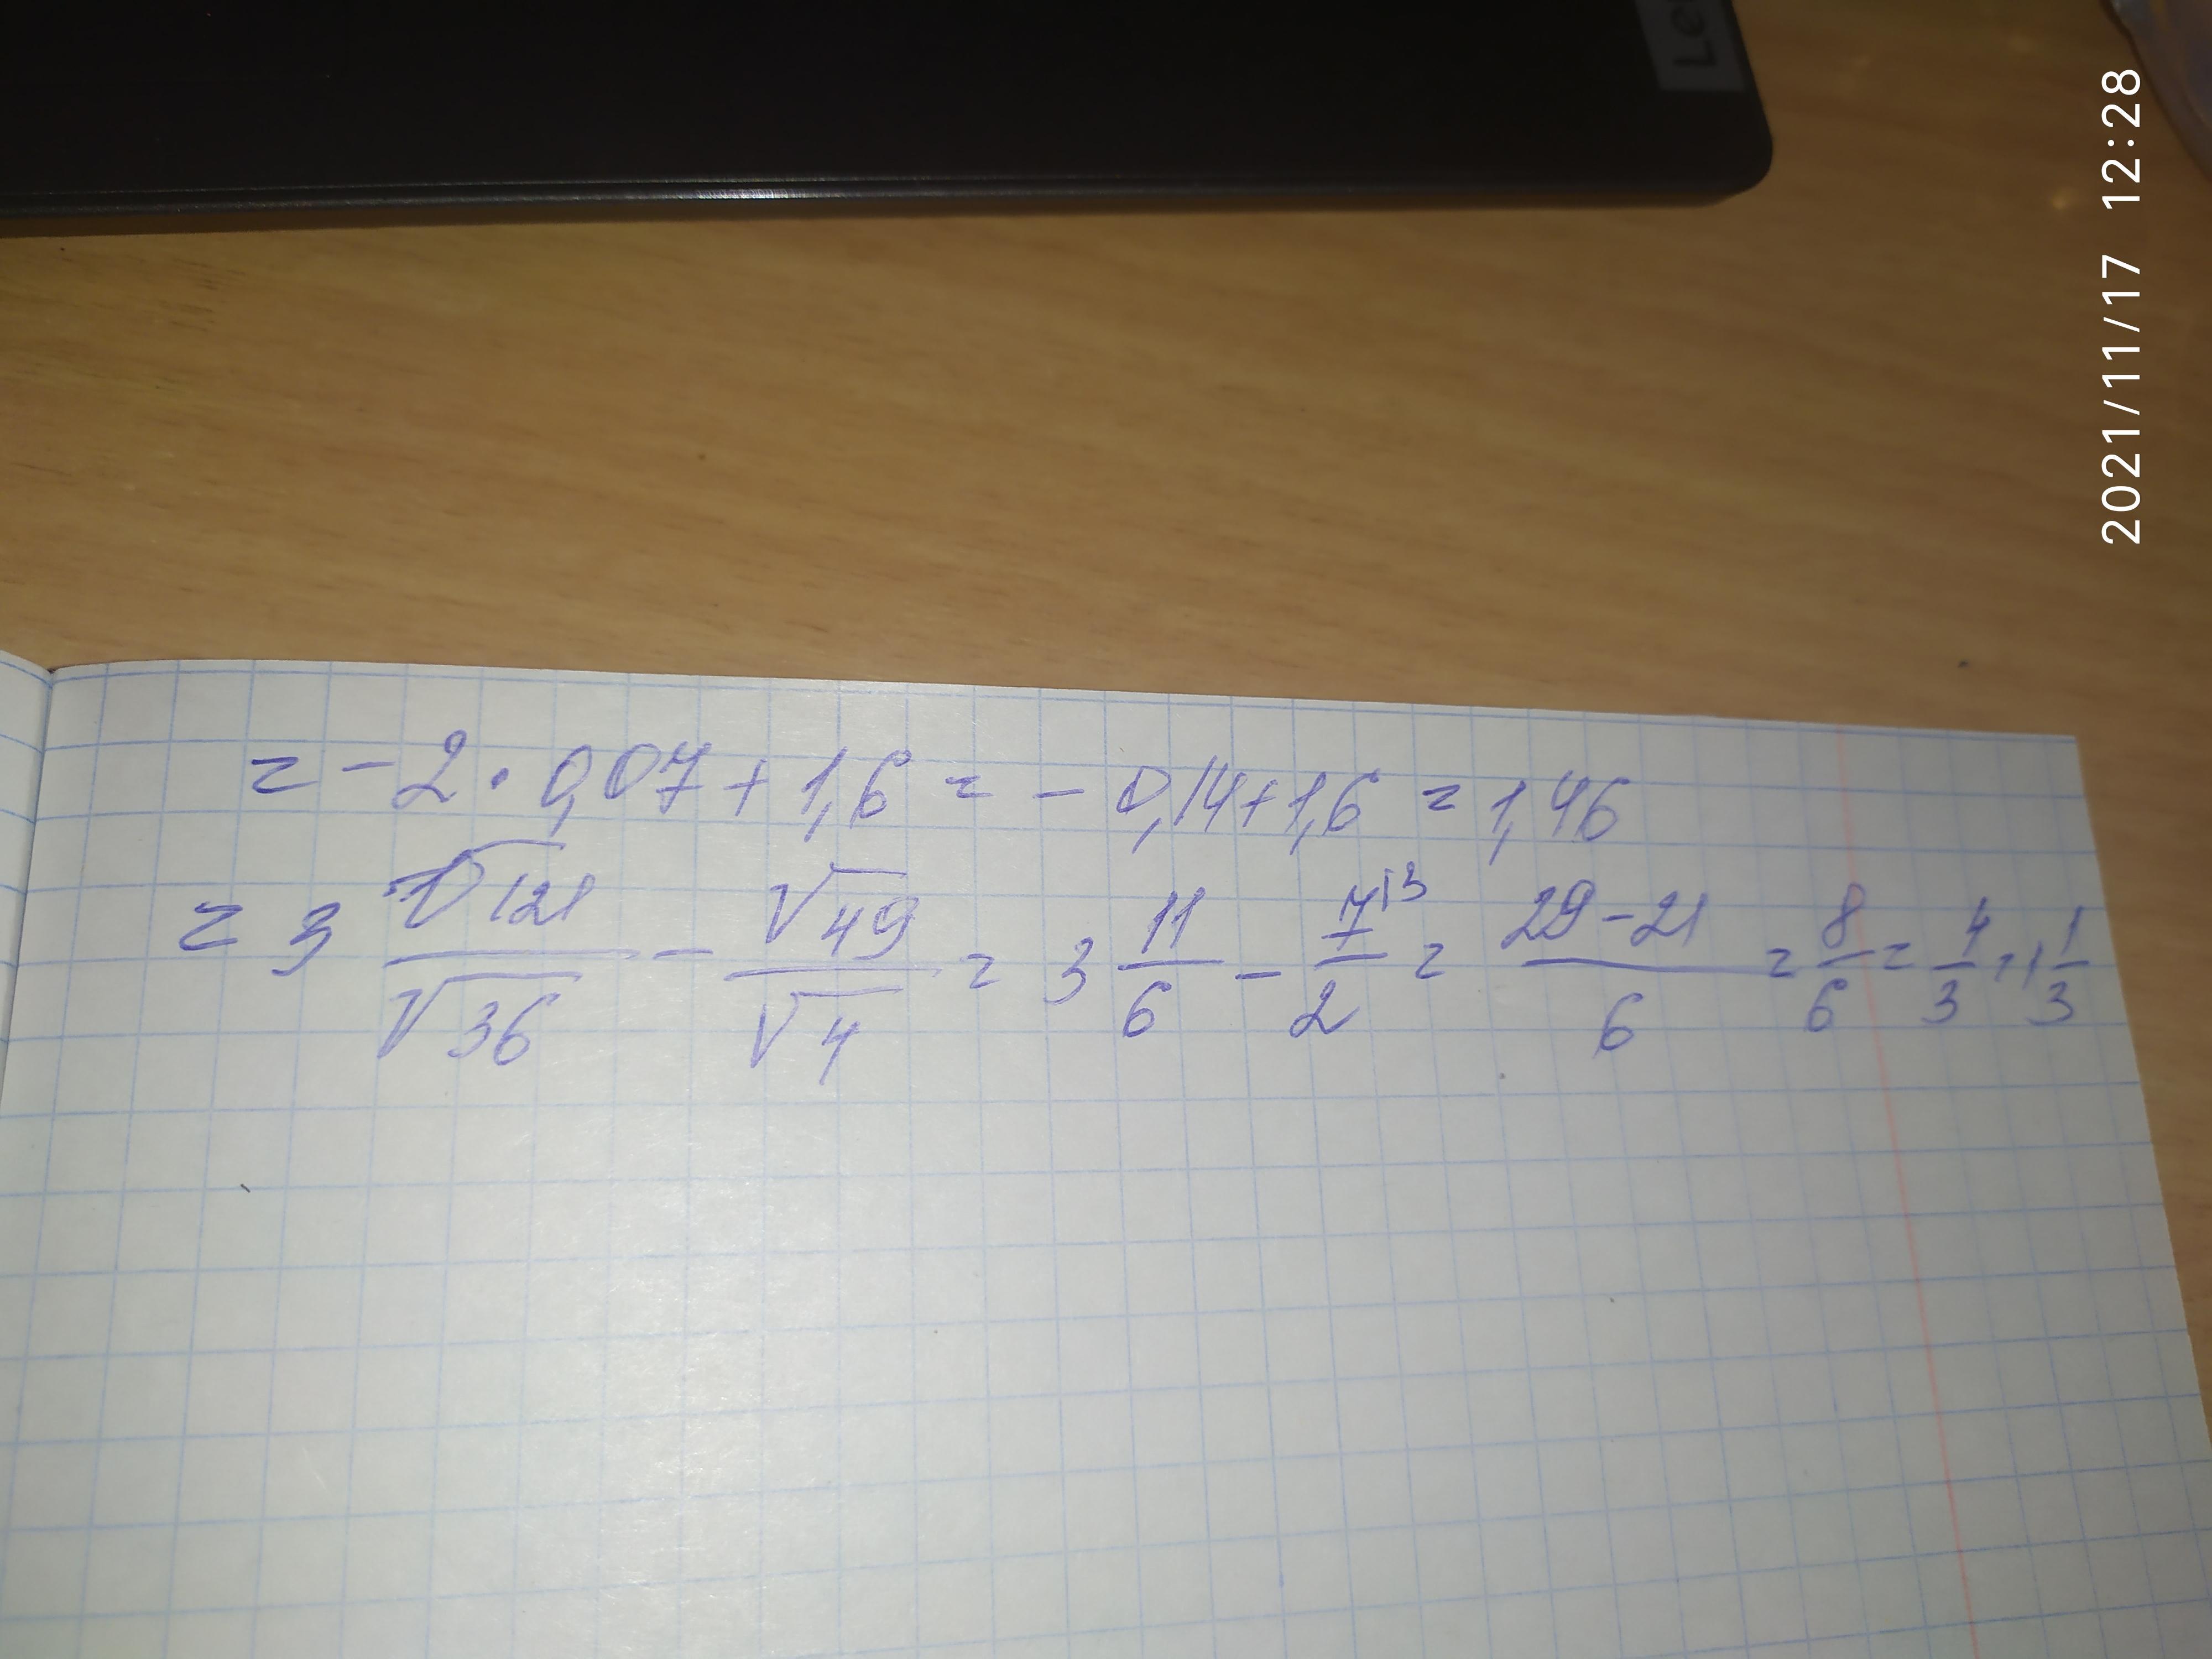 Le
2021/11/17 12:28
= -2 · 0,07 + 1,6 = - 0,14 + 1,6 = 1,46
= 3 √121/√36 - √49/√4 = 3 11/6 - 7/2 |3 = 29-21/6 = 8/6 = 4/3 = 1 1/3